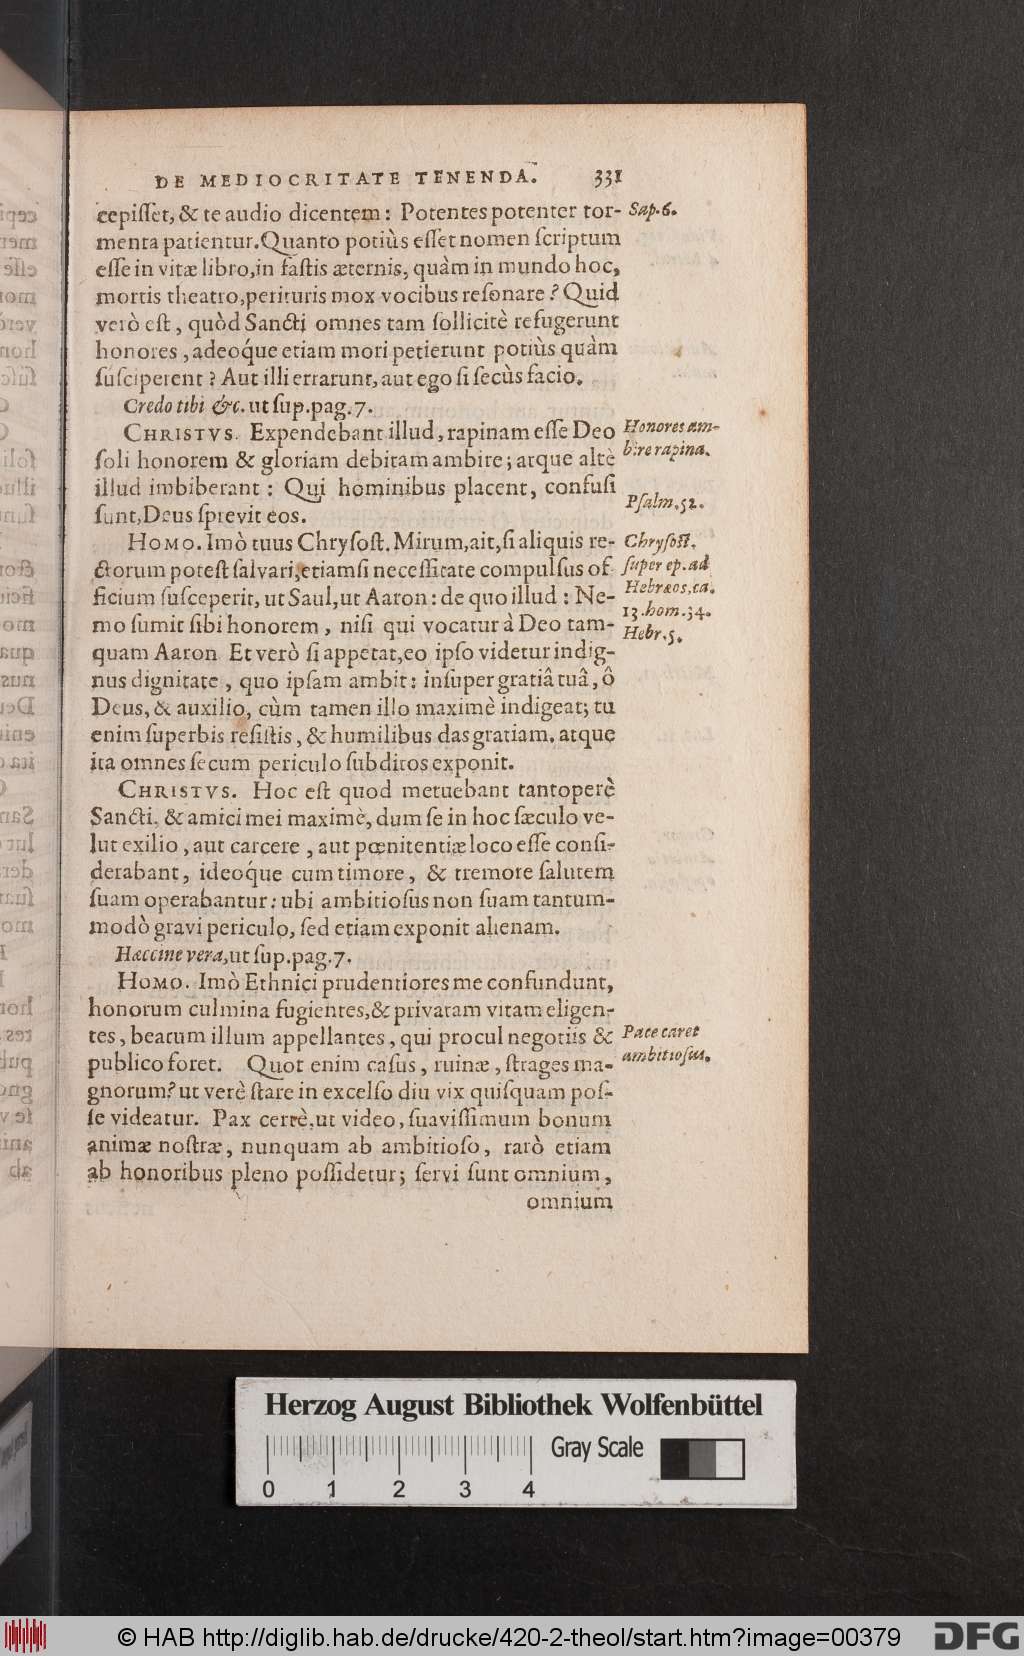 DE MEDIOCRITATE TENENDA. 331
cepisset, & te audio dicentem: Potentes potenter tor- Sap. 6.
menta patientur. Quanto potiùs esset nomen scriptum
esse in vitæ libro, in fastis æternis, quàm in mundo hoc,
mortis theatro, perituris mox vocibus resonare? Quid
verò est, quòd Sancti omnes tam sollicitè refugerunt
honores, adeóque etiam mori petierunt potiùs quàm
susciperent? Aut illi errarunt, aut ego si secùs facio.
Credo tibi &c. ut sup. pag. 7.
CHRISTVS. Expendebant illud, rapinam esse Deo
soli honorem & gloriam debitam ambire; atque altè
illud imbiberant: Qui hominibus placent, confusi
sunt, Deus sprevit eos.
Honores am-
bire rapina.
Psalm. 52.
HOMO. Imò tuus Chrysost. Mirum, ait, si aliquis re-
ctorum potest salvari, etiamsi necessitate compulsus of
ficium susceperit, ut Saul, ut Aaron: de quo illud: Ne-
mo sumit sibi honorem, nisi qui vocatur à Deo tam-
quam Aaron Et verò si appetat, eo ipso videtur indig-
nus dignitate, quo ipsam ambit: insuper gratiâ tuâ, ô
Deus, & auxilio, cùm tamen illo maximè indigeat; tu
enim superbis resistis, & humilibus das gratiam. atque
ita omnes secum periculo subditos exponit.
Chrysost.
super ep. ad
Hebræos. ca.
13. hom. 34.
Hebr. 5.
CHRISTVS. Hoc est quod metuebant tantoperè
Sancti, & amici mei maximè, dum se in hoc sæculo ve-
lut exilio, aut carcere, aut pœnitentiæ loco esse consi-
derabant, ideóque cum timore, & tremore salutem
suam operabantur: ubi ambitiosus non suam tantum-
modò gravi periculo, sed etiam exponit alienam.
Hæccine vera, ut sup. pag. 7.
HOMO. Imò Ethnici prudentiores me confundunt,
honorum culmina fugientes, & privatam vitam eligen-
tes, beatum illum appellantes, qui procul negotiis &
publico foret. Quot enim casus, ruinæ, strages ma-
gnorum? ut verè stare in excelso diu vix quisquam pos-
se videatur. Pax certè, ut video, suavissimum bonum
animæ nostræ, nunquam ab ambitioso, rarò etiam
ab honoribus pleno possidetur; servi sunt omnium,
omnium
Pace caret
ambitiosus.
Herzog August Bibliothek Wolfenbüttel
Gray Scale
0 1 2 3 4
© HAB http://diglib.hab.de/drucke/420-2-theol/start.htm?image=00379
DFG